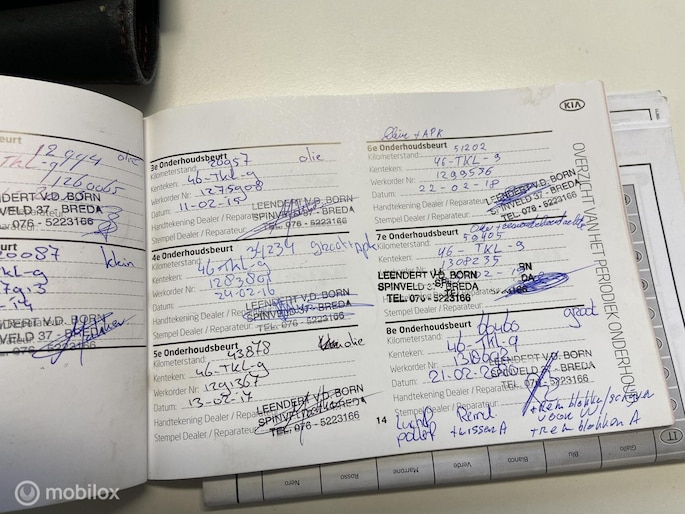 eurt
12944 olie
TKL-9
1260065
ENDERT V.D. BORN
NVELD 37 - BREDA
076 - 5223166
eurt
20087 klein
KL-9
NDERT V.D. BORN
VELD 37 - BREDA
. 076 - 5223166
3e Onderhoudsbeurt
Kilometerstand: 20957 olie
Kenteken: 46-TKL-9
Werkorder Nr: 1275908
Datum: 11-02-15
Handtekening Dealer / Reparateur:
Stempel Dealer / Reparateur:
LEENDERT V.D. BORN
SPINVELD 37 - BREDA
TEL. 076 - 5223166
4e Onderhoudsbeurt
Kilometerstand: 31234 groot + apk
Kenteken: 46-TKL-9
Werkorder Nr:
Datum: 24-02-16
Handtekening Dealer / Reparateur:
Stempel Dealer / Reparateur:
LEENDERT V.D. BORN
SPINVELD 37 - BREDA
TEL. 076 - 5223166
5e Onderhoudsbeurt
Kilometerstand: 43878 olie
Kenteken: 46-TKL-9
Werkorder Nr: 1291367
Datum: 13-02-17
Handtekening Dealer / Reparateur:
Stempel Dealer / Reparateur:
LEENDERT V.D. BORN
SPINVELD 37 - BREDA
TEL. 076 - 5223166
KIA
OVERZICHT VAN HET PERIODIEK ONDERHOUD
+ APK
6e Onderhoudsbeurt
Kilometerstand: 51202
Kenteken: 46-TKL-9
Werkorder Nr: 1299576
Datum: 22-02-18
Handtekening Dealer / Reparateur:
Stempel Dealer / Reparateur:
LEENDERT V.D. BORN
SPINVELD 37 - BREDA
TEL. 076 - 5223166
7e Onderhoudsbeurt
Kilometerstand: 59405
Kenteken: 46-TKL-9
Werkorder Nr: 1308235
LEENDERT V.D. BORN
SPINVELD 37 - BREDA
TEL. 076 - 5223166
8e Onderhoudsbeurt
Kilometerstand: 66466 groot
Kenteken: 46-TKL-9
Werkorder Nr:
Datum:
Handtekening Dealer / Reparateur:
Stempel Dealer / Reparateur:
LEENDERT V.D. BORN
SPINVELD 37 - BREDA
TEL. 076 - 5223166
14
+ wisser A
+ Remblokken A
Nero
Rosso
Marrone
Verde
Bianco
Blu
Giallo
IT
mobilox